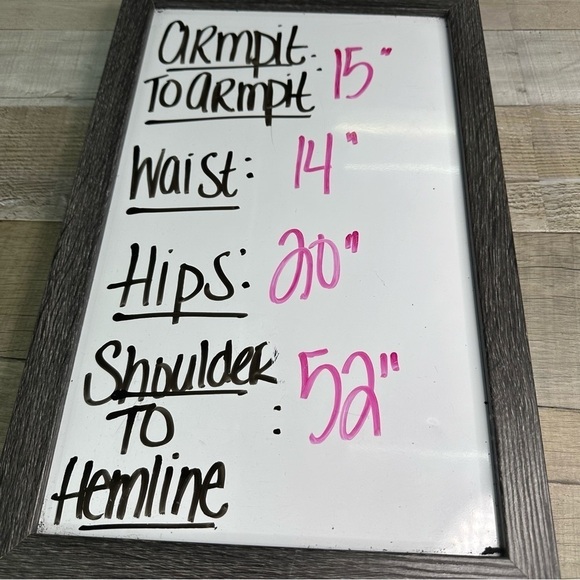 armpit
To armpit : 15"
Waist: 14"
Hips: 20"
Shoulder
To : 52"
Hemline